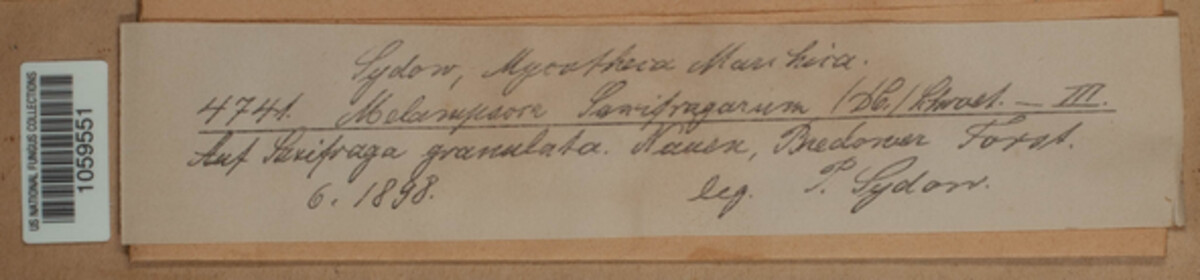 US NATIONAL FUNGUS COLLECTIONS
1059551
Sydow, Mycotheca Marchica.
4741. Melampsora Saxifragarum (DC.) Schroet. — III.
Auf Saxifraga granulata. Nauen, Bredower Forst.
6. 1898. leg. P. Sydow.